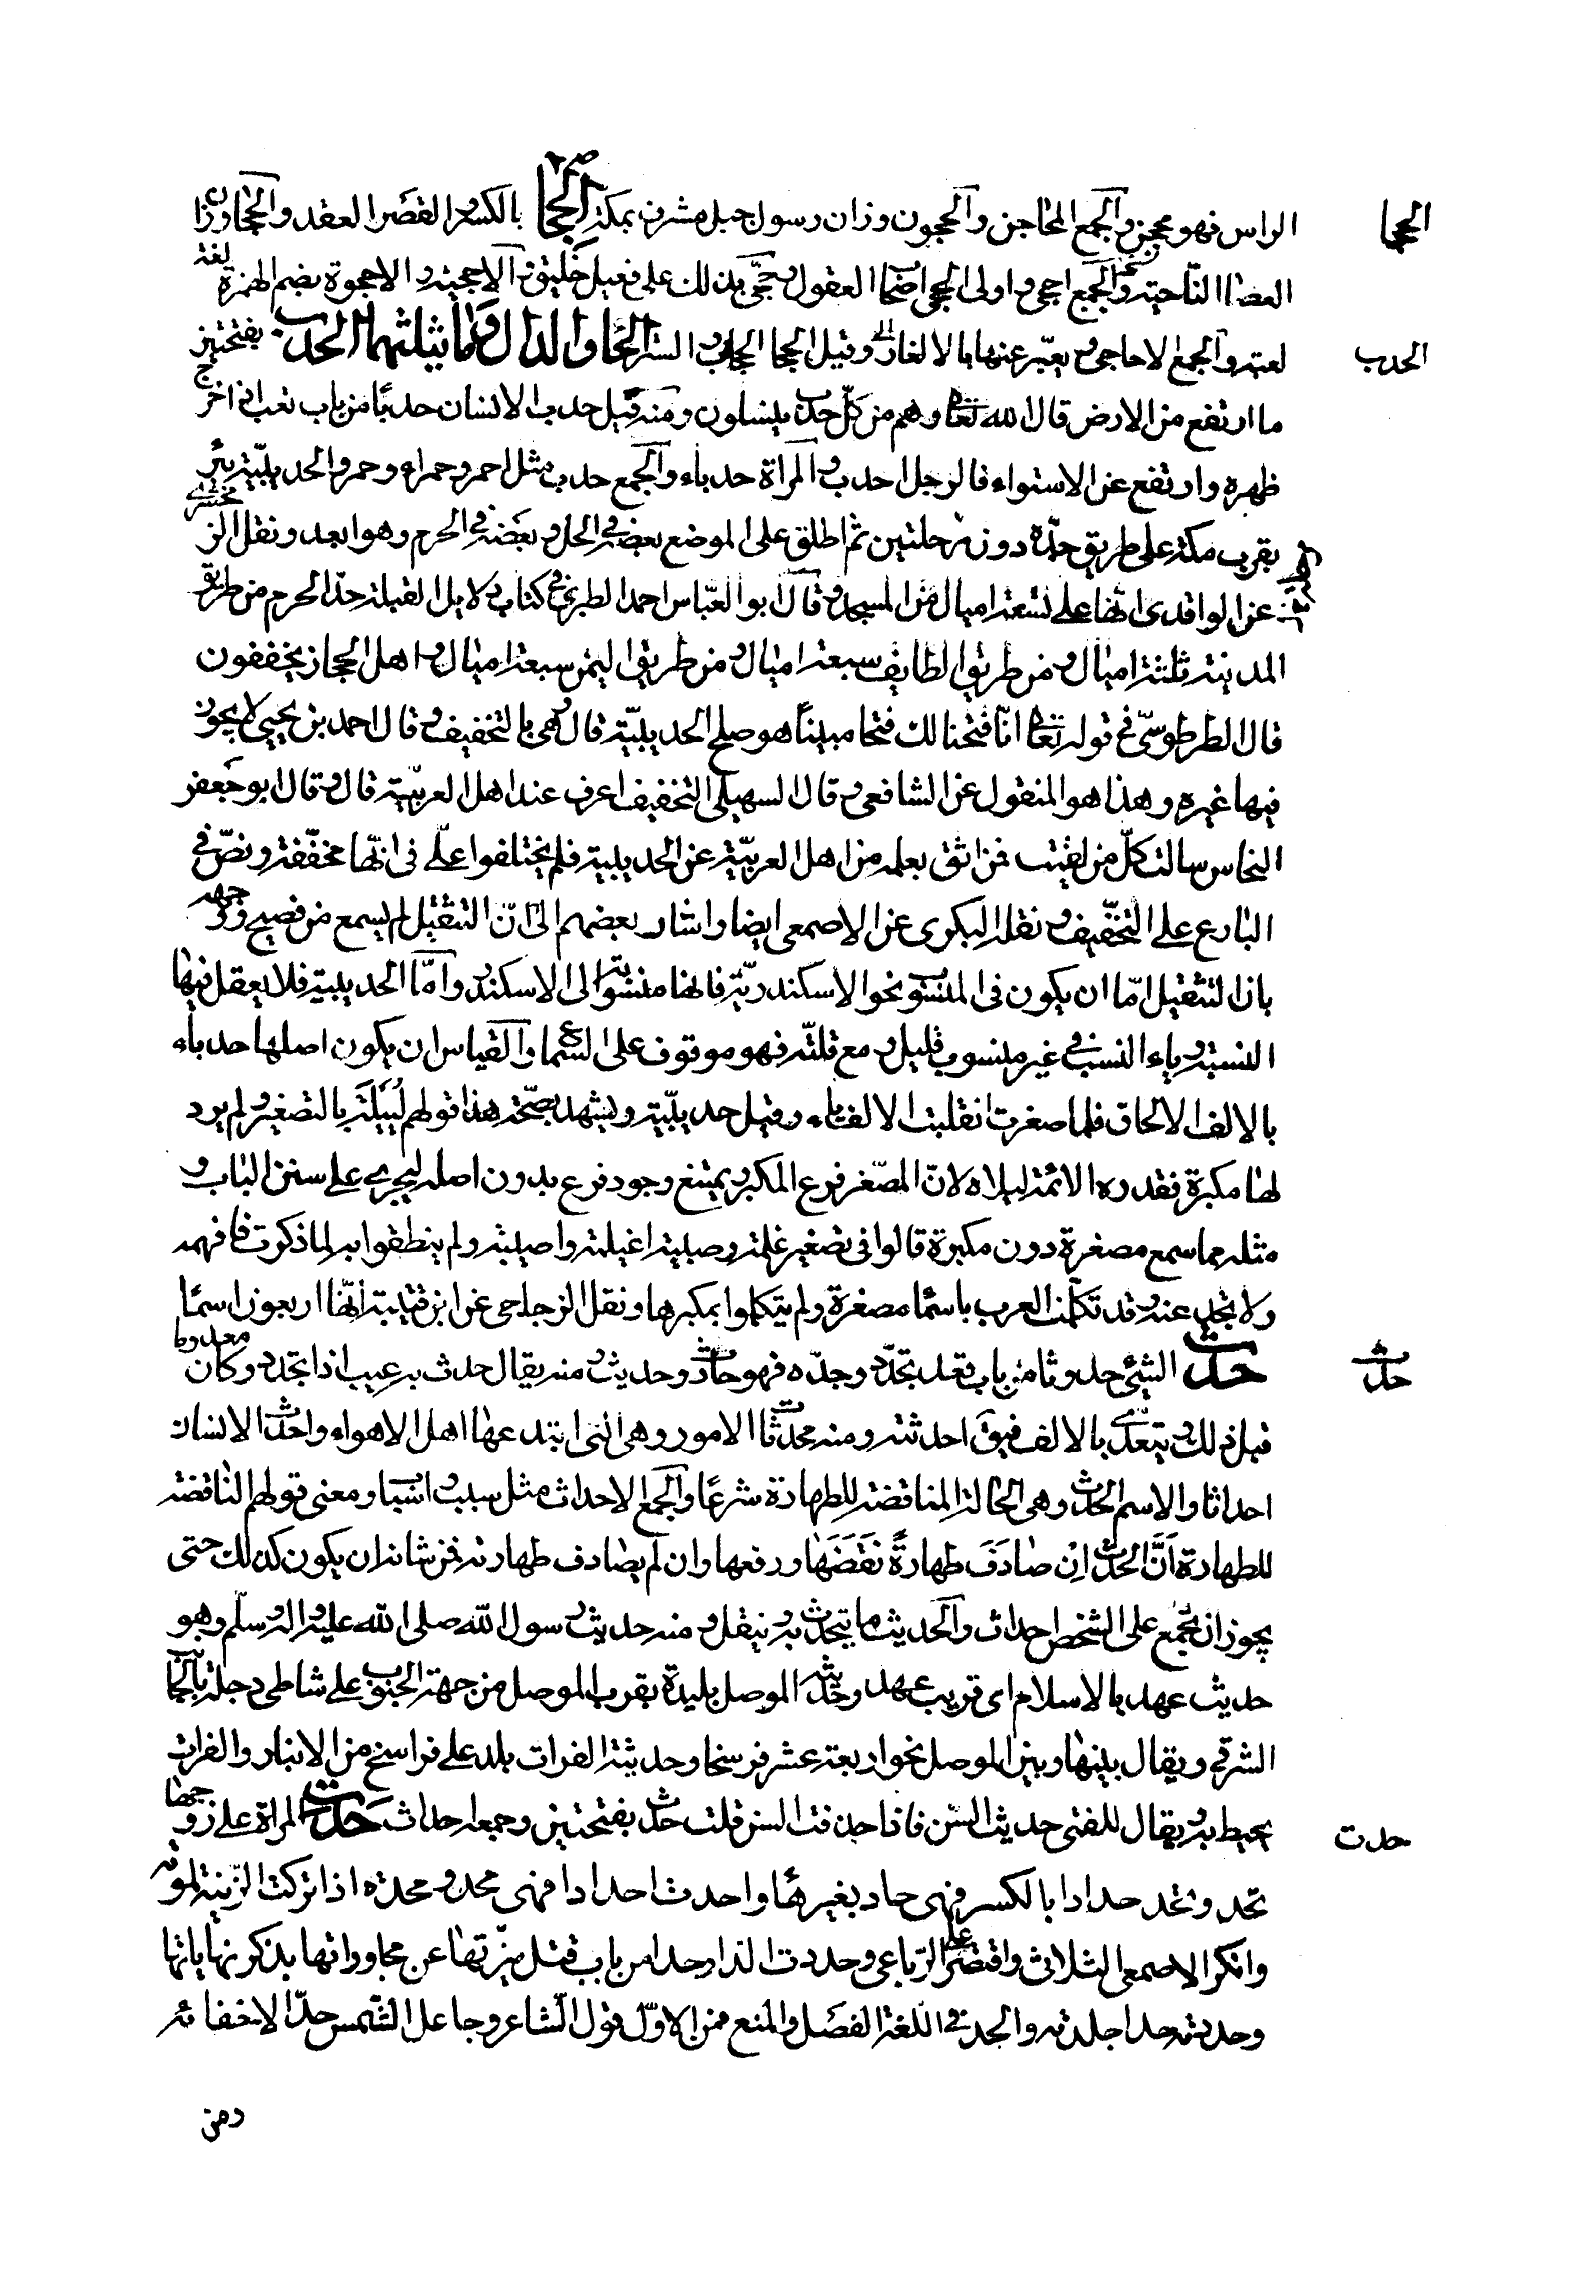 الراس فهو محجن والجمع المحاجن والحجون وزان رسول جبل مشرف بمكة الحجا بالكسر والقصر العقل والحجا وزان
الحجا
العصا الناحية والجمع احجى واولى الحجى اصحاب العقول وحجى بذلك على فعيل خليق والاحجية والاحجوة بضم الهمزة لغة
لعبة والجمع الاحاجى ويعبر عنها بالالغاز وقيل الحجا الحجاب والستر الحاء والدال وما يثلثهما الحدب بفتحتين
الحدب
ما ارتفع من الارض قال الله تعالى وهم من كل حدب ينسلون ومنه قيل حدب الانسان حدبا من باب تعب اذا خرج
ظهره وارتفع عن الاستواء فالرجل احدب والمراة حدباء والجمع حدب مثل احمر وحمراء وحمر والحديبية بئر
بقرب مكة على طريق جدة دون مرحلتين ثم اطلق على الموضع بعضه فى الحل وبعضه فى الحرم وهو ابعد ونقل الزمخشرى
عن الواقدى انها على تسعة اميال من المسجد وقال ابو العباس احمد الطبرى فى كتاب دلايل القبلة حد الحرم من طريق
المدينة ثلثة اميال ومن طريق الطايف سبعة اميال ومن طريق اليمن سبعة اميال واهل الحجاز يخففون
قال الطرطوسى فى قوله تعالى انا فتحنا لك فتحا مبينا هو صلح الحديبية قال وهى بالتخفيف وقال احمد بن يحيى لا يجوز
فيها غيره وهذا هو المنقول عن الشافعى وقال السهيلى التخفيف اعرف عند اهل العربية قال وقال ابو جعفر
النحاس سالت كل من لقيت فمن اثق بعلمه من اهل العربية عن الحديبية فلم يختلفوا على فى انها مخففة ونص فى
البارع على التخفيف ونقله البكرى عن الاصمعى ايضا واشار بعضهم الى ان التثقيل لم يسمع من فصيح ووجهه
بان التثقيل اما ان يكون فى المنسوب نحو الاسكندرية فانها منسوبة الى الاسكندر واما الحديبية فلا يعقل فيها
النسبة وياء النسب فى غير منسوب قليل ومع قلته فهو موقوف على السماع والقياس ان يكون اصلها حدباء
بالالف الالحاق فلما صغرت انقلبت الالف ياء وقيل حديبية ويشهد بصحة هذا قولهم لييلة بالتصغير ولم يرد
لها مكبرة فقدره الائمة ليلاه لان المصغر فرع المكبر ويمتنع وجود فرع بدون اصله ليجرى على سنن الباب و
مثله مما سمع مصغرة دون مكبرة قالوا فى تصغير غلمة وصبية اغيلمة واصيبية ولم ينطقوا به لما ذكرت فافهمه
ولا تحد عنه وقد تكلمت العرب باسما مصغرة ولم يتكلموا بمكبرها ونقل الزجاجى عن ابن قتيبة انها اربعون اسما
حدث الشئ حدوثا من باب قعد تجدد وجده فهو حادث وحديث ومنه يقال حدث به عيب اذا تجدد وكان معدوما
حدث
قبل ذلك ويتعدى بالالف فيق احدثته ومنه محدثات الامور وهى التى ابتدعها اهل الاهواء واحدث الانسان
احداثا والاسم الحدث وهى الحالة المناقضة للطهارة شرعا والجمع الاحداث مثل سبب واسباب ومعنى قولهم الناقضة
للطهارة ان الحدث ان صادف طهارة نقضها ورفعها وان لم يصادف طهارته فمن شانه ان يكون كذلك حتى
يجوز ان يجتمع على الشخص احداث والحديث ما يتحدث به وينقل ومنه حديث رسول الله صلى الله عليه واله وسلم وهو
حديث عهد بالاسلام اى قريب عهد وحديثة الموصل بليدة بقرب الموصل من جهة الجنوب على شاطى دجلة بالجانب
الشرقى ويقال بينها وبين الموصل نحو اربعة عشر فرسخا وحديثة الفرات بلد على فراسخ من الانبار والفرات
يحيط به ويقال للفتى حديث السن فاذا حذفت السن قلت حدث بفتحتين وجمعه احداث حدت المراة على زوجها
حدت
تحد وتحد حدادا بالكسر فهى حاد بغير ها واحدت احدادا فهى محد ومحدة اذا تركت الزينة لموته
وانكر الاصمعى الثلاثى واقتصر على الرباعى وحددت الدار حدا من باب قتل ميزتها عن مجاوراتها بذكر نهاياتها
وحديته حدا جلدته والحد فى اللغة الفصل والمنع فمن الاول قول الشاعر وجاعل الشمس حدا لا خفا به
ومن